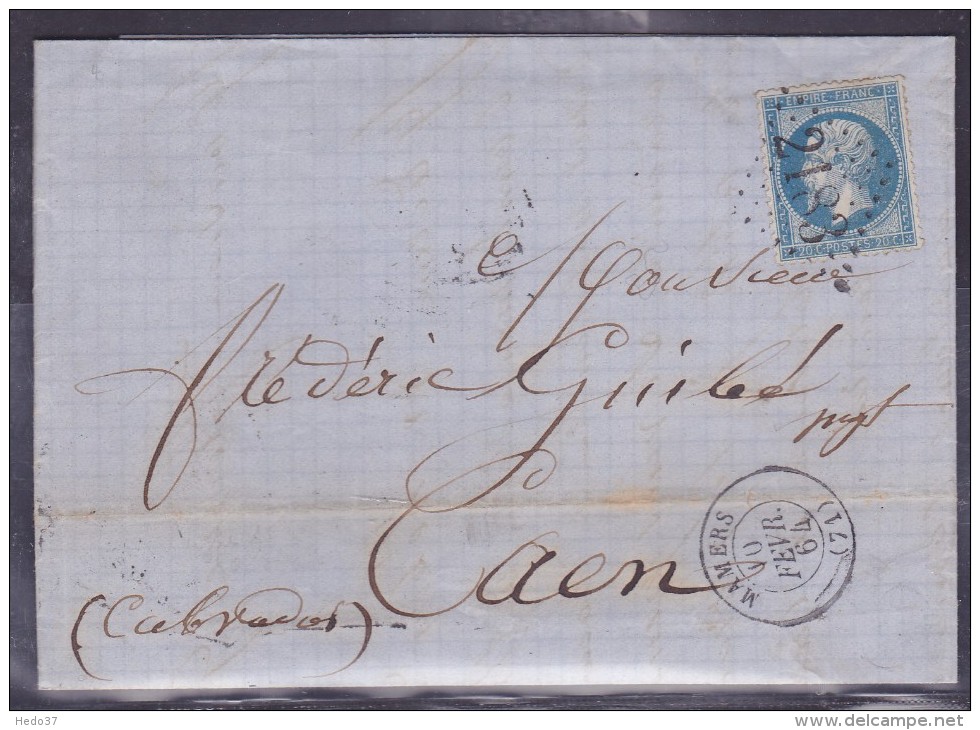 EMPIRE FRANC
2183
20 C POSTES 20 C
Monsieur
Frédéric Guilbé
Caen
(Calvados)
MAMERS (71)
10
FEVR.
64
Hedo37
www.delcampe.net